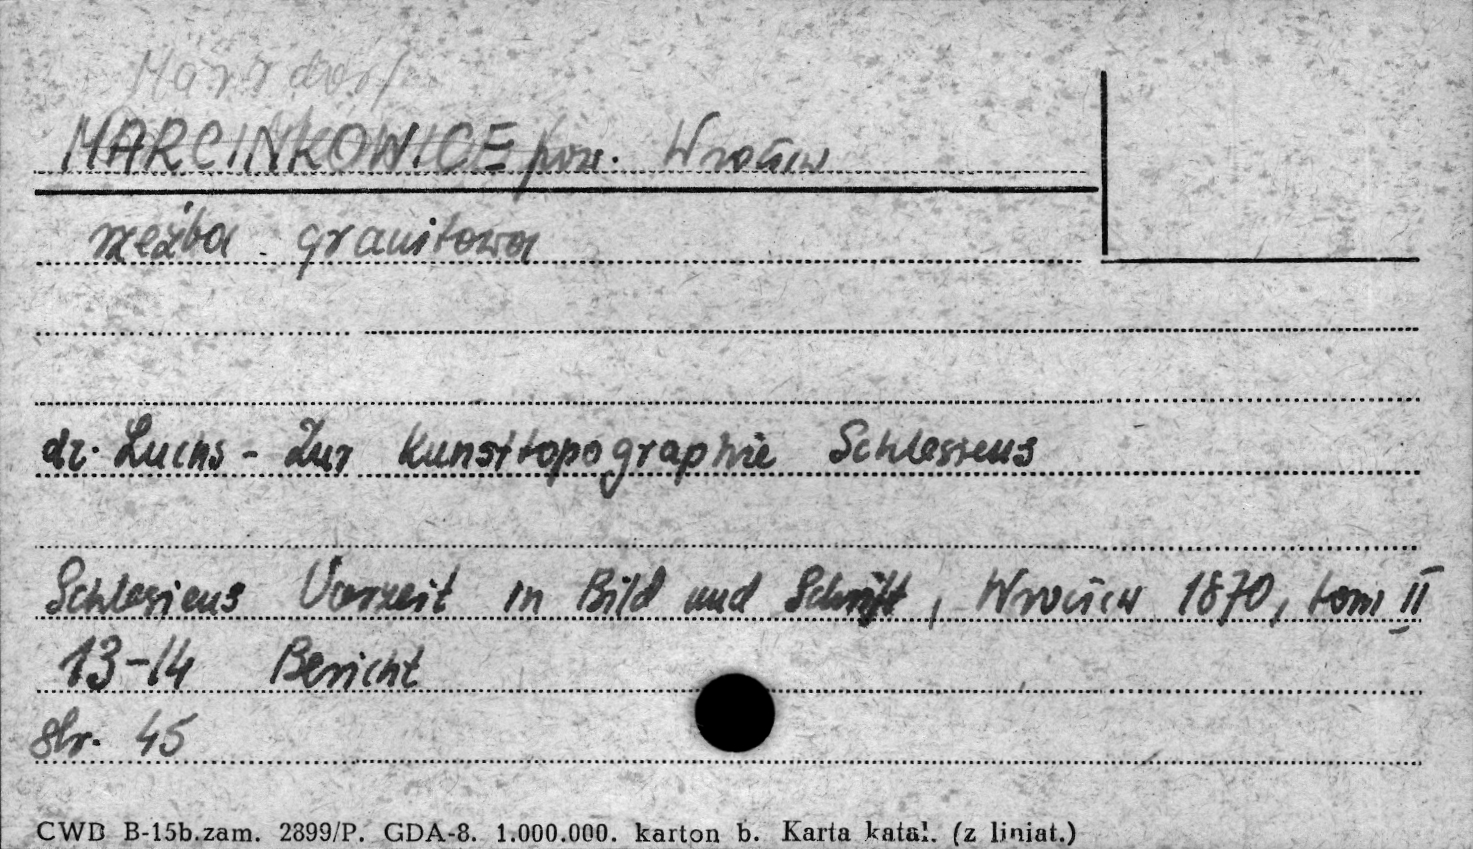 MARCINKOWICE pow. Wrocław
rzeźba granitowa
dr. Luchs - Zur Kunsttopographie Schlesiens
Schlesiens Vorzeit in Bild und Schrift, Wrocław 1870, tom II
13-14 Bericht
str. 45
CWD B-15b.zam. 2899/P. GDA-8. 1.000.000. karton b. Karta katal. (z liniat.)